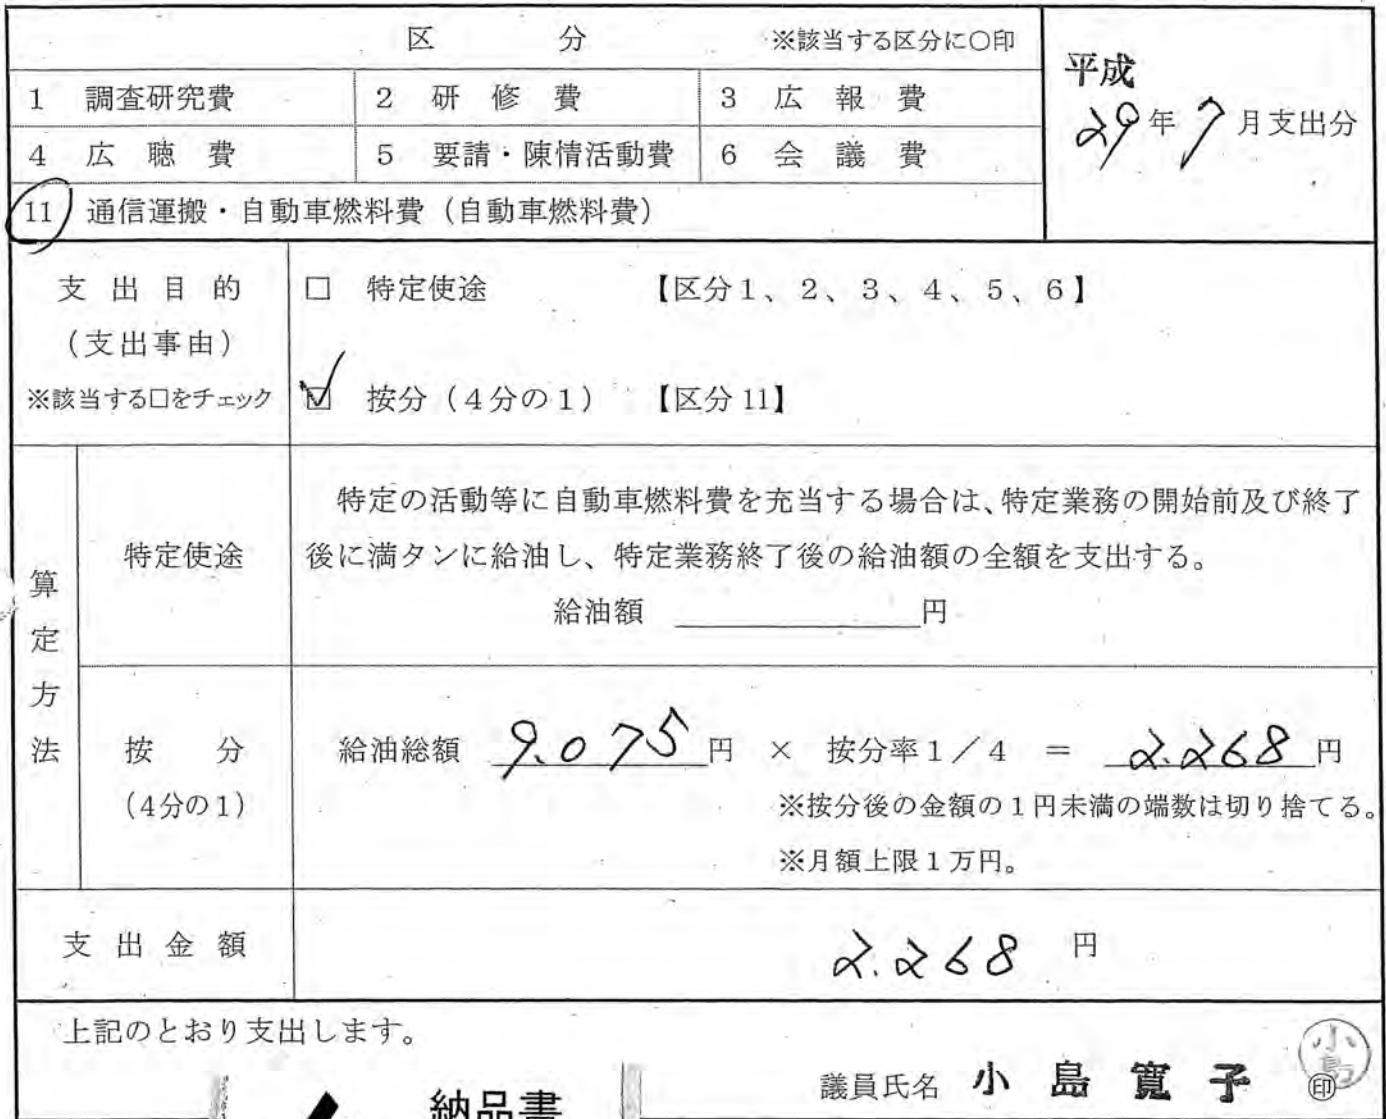 区 分 ※該当する区分に○印
平成
29年7月支出分
1 調査研究費 2 研修費 3 広報費
4 広聴費 5 要請・陳情活動費 6 会議費
11 通信運搬・自動車燃料費（自動車燃料費）
支出目的
（支出事由）
※該当する□をチェック
□ 特定使途 【区分1、2、3、4、5、6】
☑ 按分（4分の1） 【区分11】
算定方法
特定使途
特定の活動等に自動車燃料費を充当する場合は、特定業務の開始前及び終了
後に満タンに給油し、特定業務終了後の給油額の全額を支出する。
給油額 円
按分
（4分の1）
給油総額 9.075円 × 按分率1／4 ＝ 2.268円
※按分後の金額の1円未満の端数は切り捨てる。
※月額上限1万円。
支出金額 2.268 円
上記のとおり支出します。
議員氏名 小島寛子 ㊞
小島
納品書